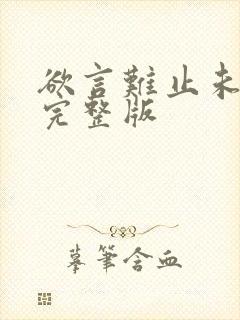 欲言難止未
完整版
摹筆含血